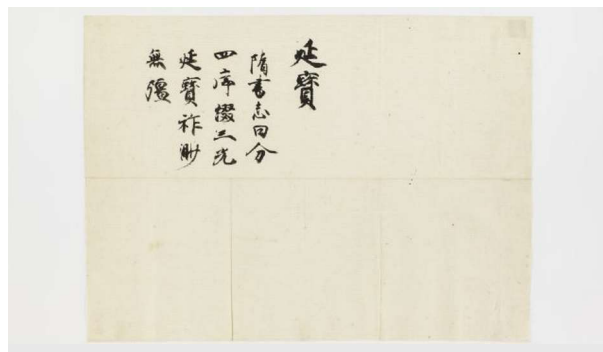 延寶
隋書志曰分
四序綴三光
延寶祚眇
無疆